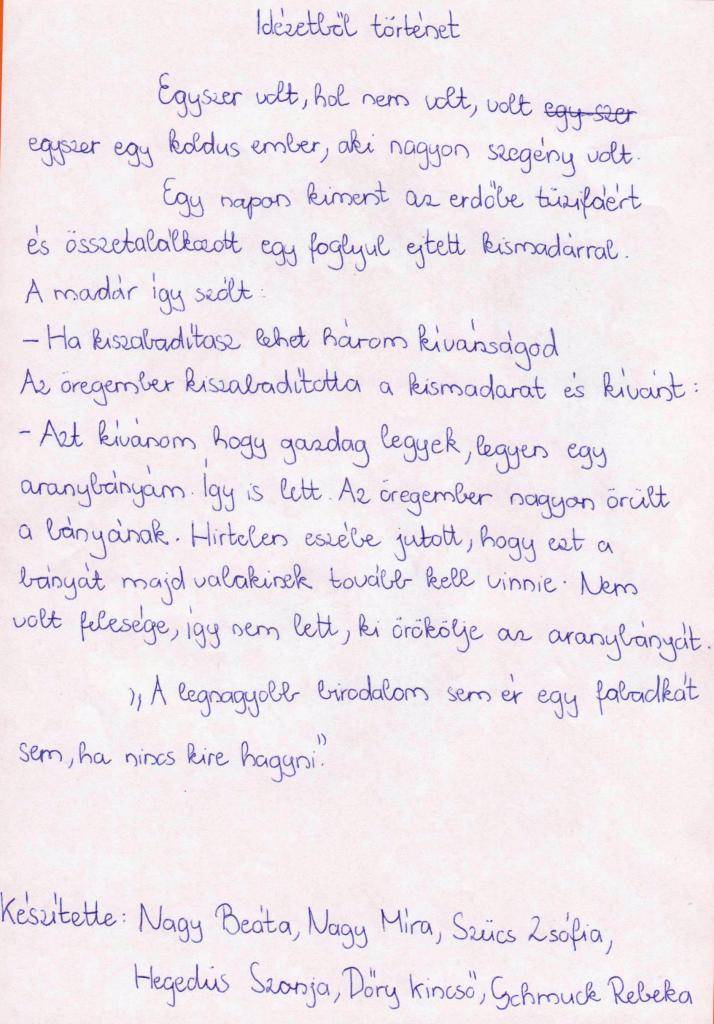 Idézetből történet
Egyszer volt, hol nem volt, volt egy szer
egyszer egy koldus ember, aki nagyon szegény volt.
Egy napon kiment az erdőbe tűzifáért
és összetalálkozott egy foglyul ejtett kismadárral.
A madár így szólt:
- Ha kiszabadítasz lehet három kívánságod
Az öregember kiszabadította a kismadarat és kívánt:
- Azt kívánom hogy gazdag legyek, legyen egy
aranybányám. Így is lett. Az öregember nagyon örült
a bányának. Hirtelen eszébe jutott, hogy ezt a
bányát majd valakinek tovább kell vinnie. Nem
volt felesége, így nem lett, ki örökölje az aranybányát.
„A legnagyobb birodalom sem ér egy fabadkát
sem, ha nincs kire hagyni."
Készítette: Nagy Beáta, Nagy Míra, Szűcs Zsófia,
Hegedűs Szonja, Dőry Kincső, Schmuck Rebeka